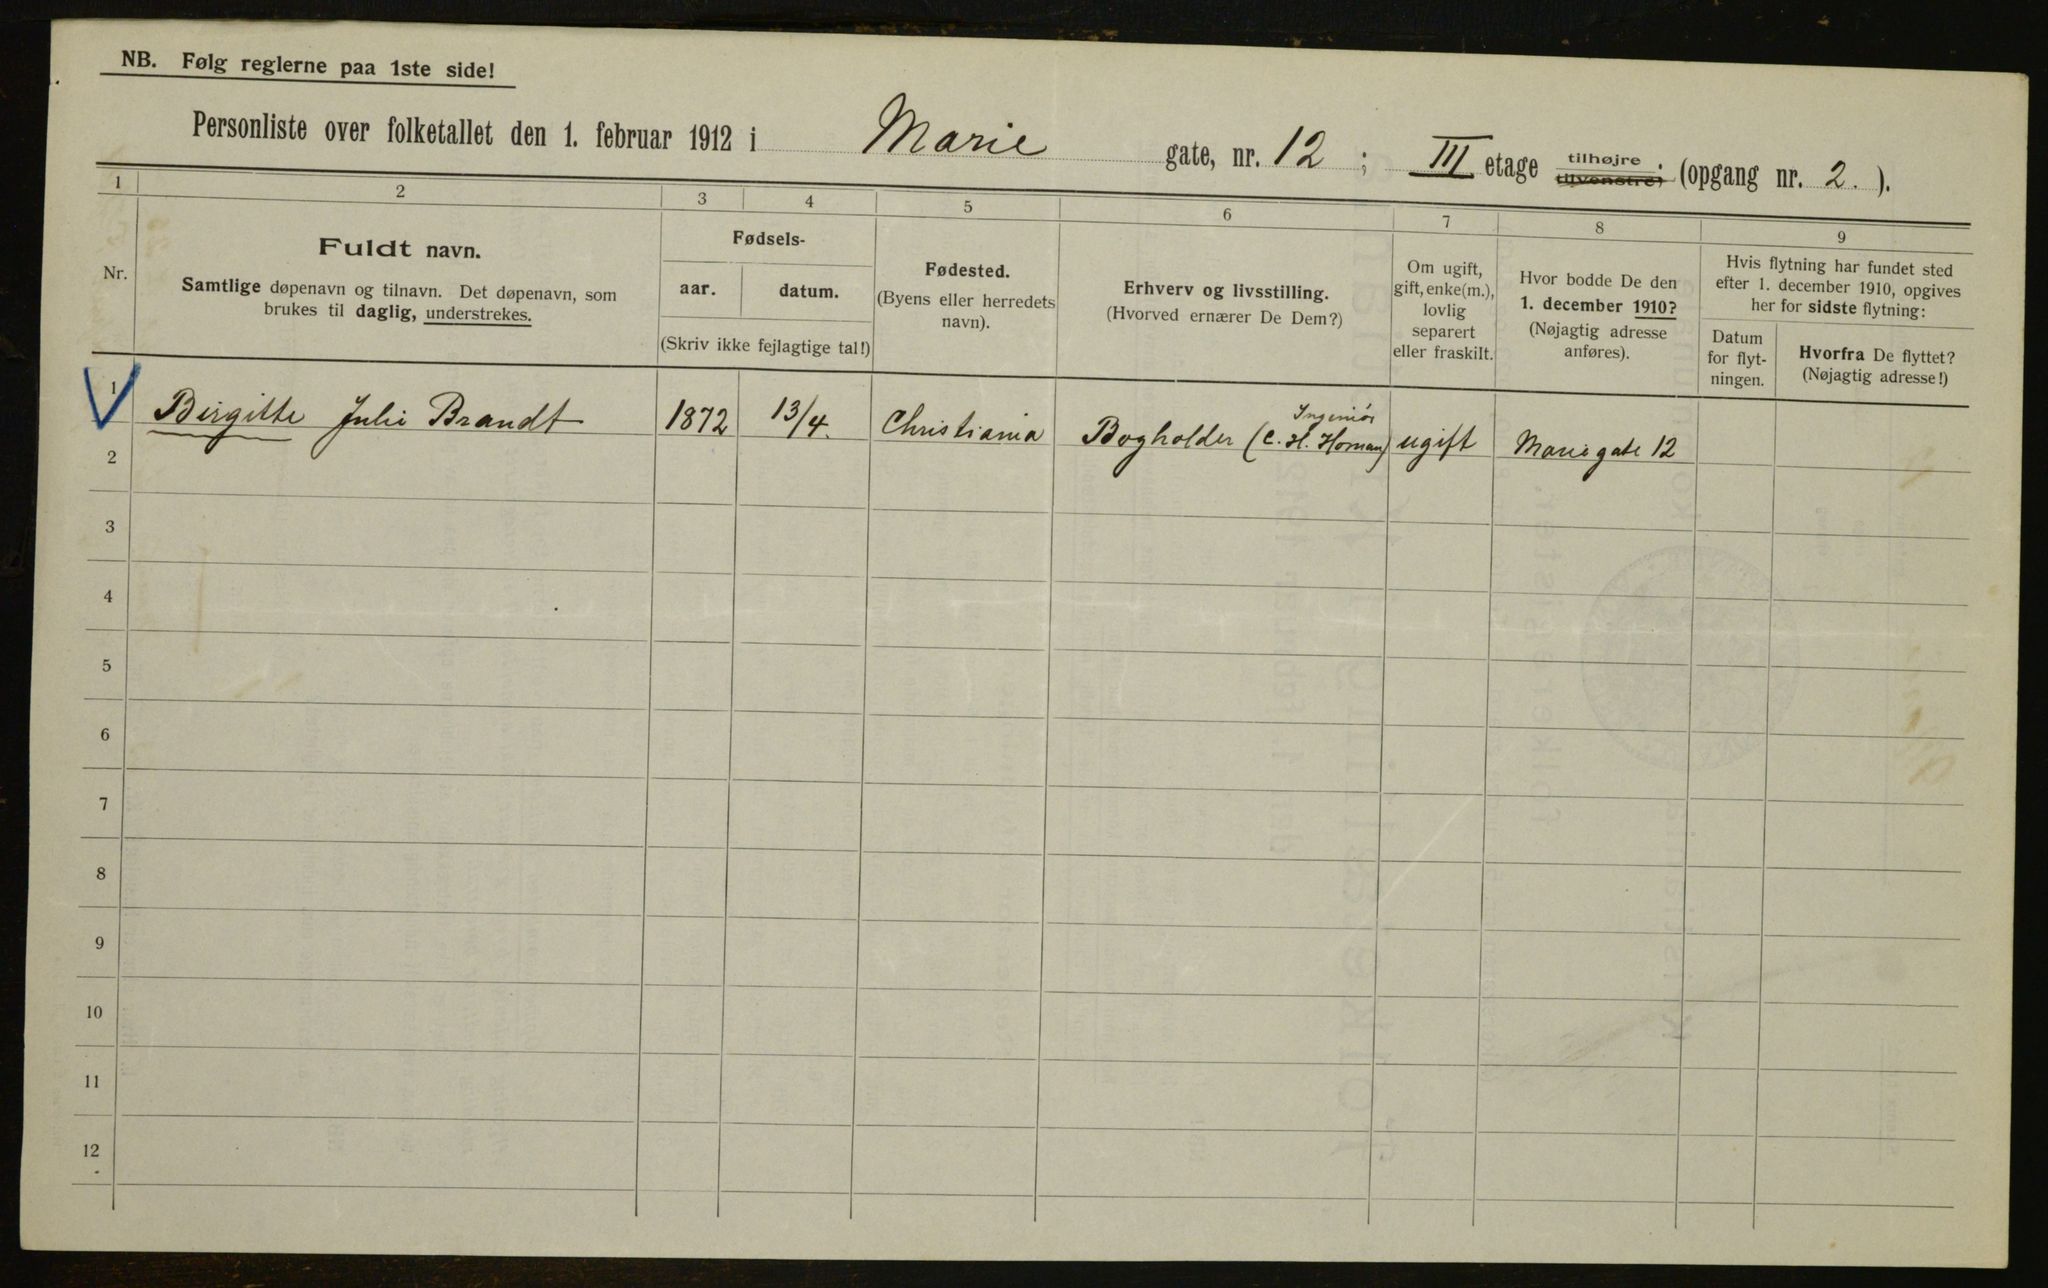 NB. Følg reglerne paa 1ste side!
Personliste over folketallet den 1. februar 1912 i Marie gate, nr. 12 ; III etage tilhøjre tilvenstre; (opgang nr. 2. ).
1 2 3 4 5 6 7 8 9
Nr.
Fuldt navn.
Samtlige døpenavn og tilnavn. Det døpenavn, som
brukes til daglig, understrekes.
Fødsels-
aar. datum.
(Skriv ikke fejlagtige tal!)
Fødested.
(Byens eller herredets
navn).
Erhverv og livsstilling.
(Hvorved ernærer De Dem?)
Om ugift,
gift, enke(m.),
lovlig
separert
eller fraskilt.
Hvor bodde De den
1. december 1910?
(Nøjagtig adresse
anføres).
Hvis flytning har fundet sted
efter 1. december 1910, opgives
her for sidste flytning:
Datum
for flyt-
ningen.
Hvorfra De flyttet?
(Nøjagtig adresse!)
1 Birgitte Julie Brandt 1872 13/4. Christiania Bogholder (Ingeniør C. H. Homan) ugift Mariegate 12
2
3
4
5
6
7
8
9
10
11
12